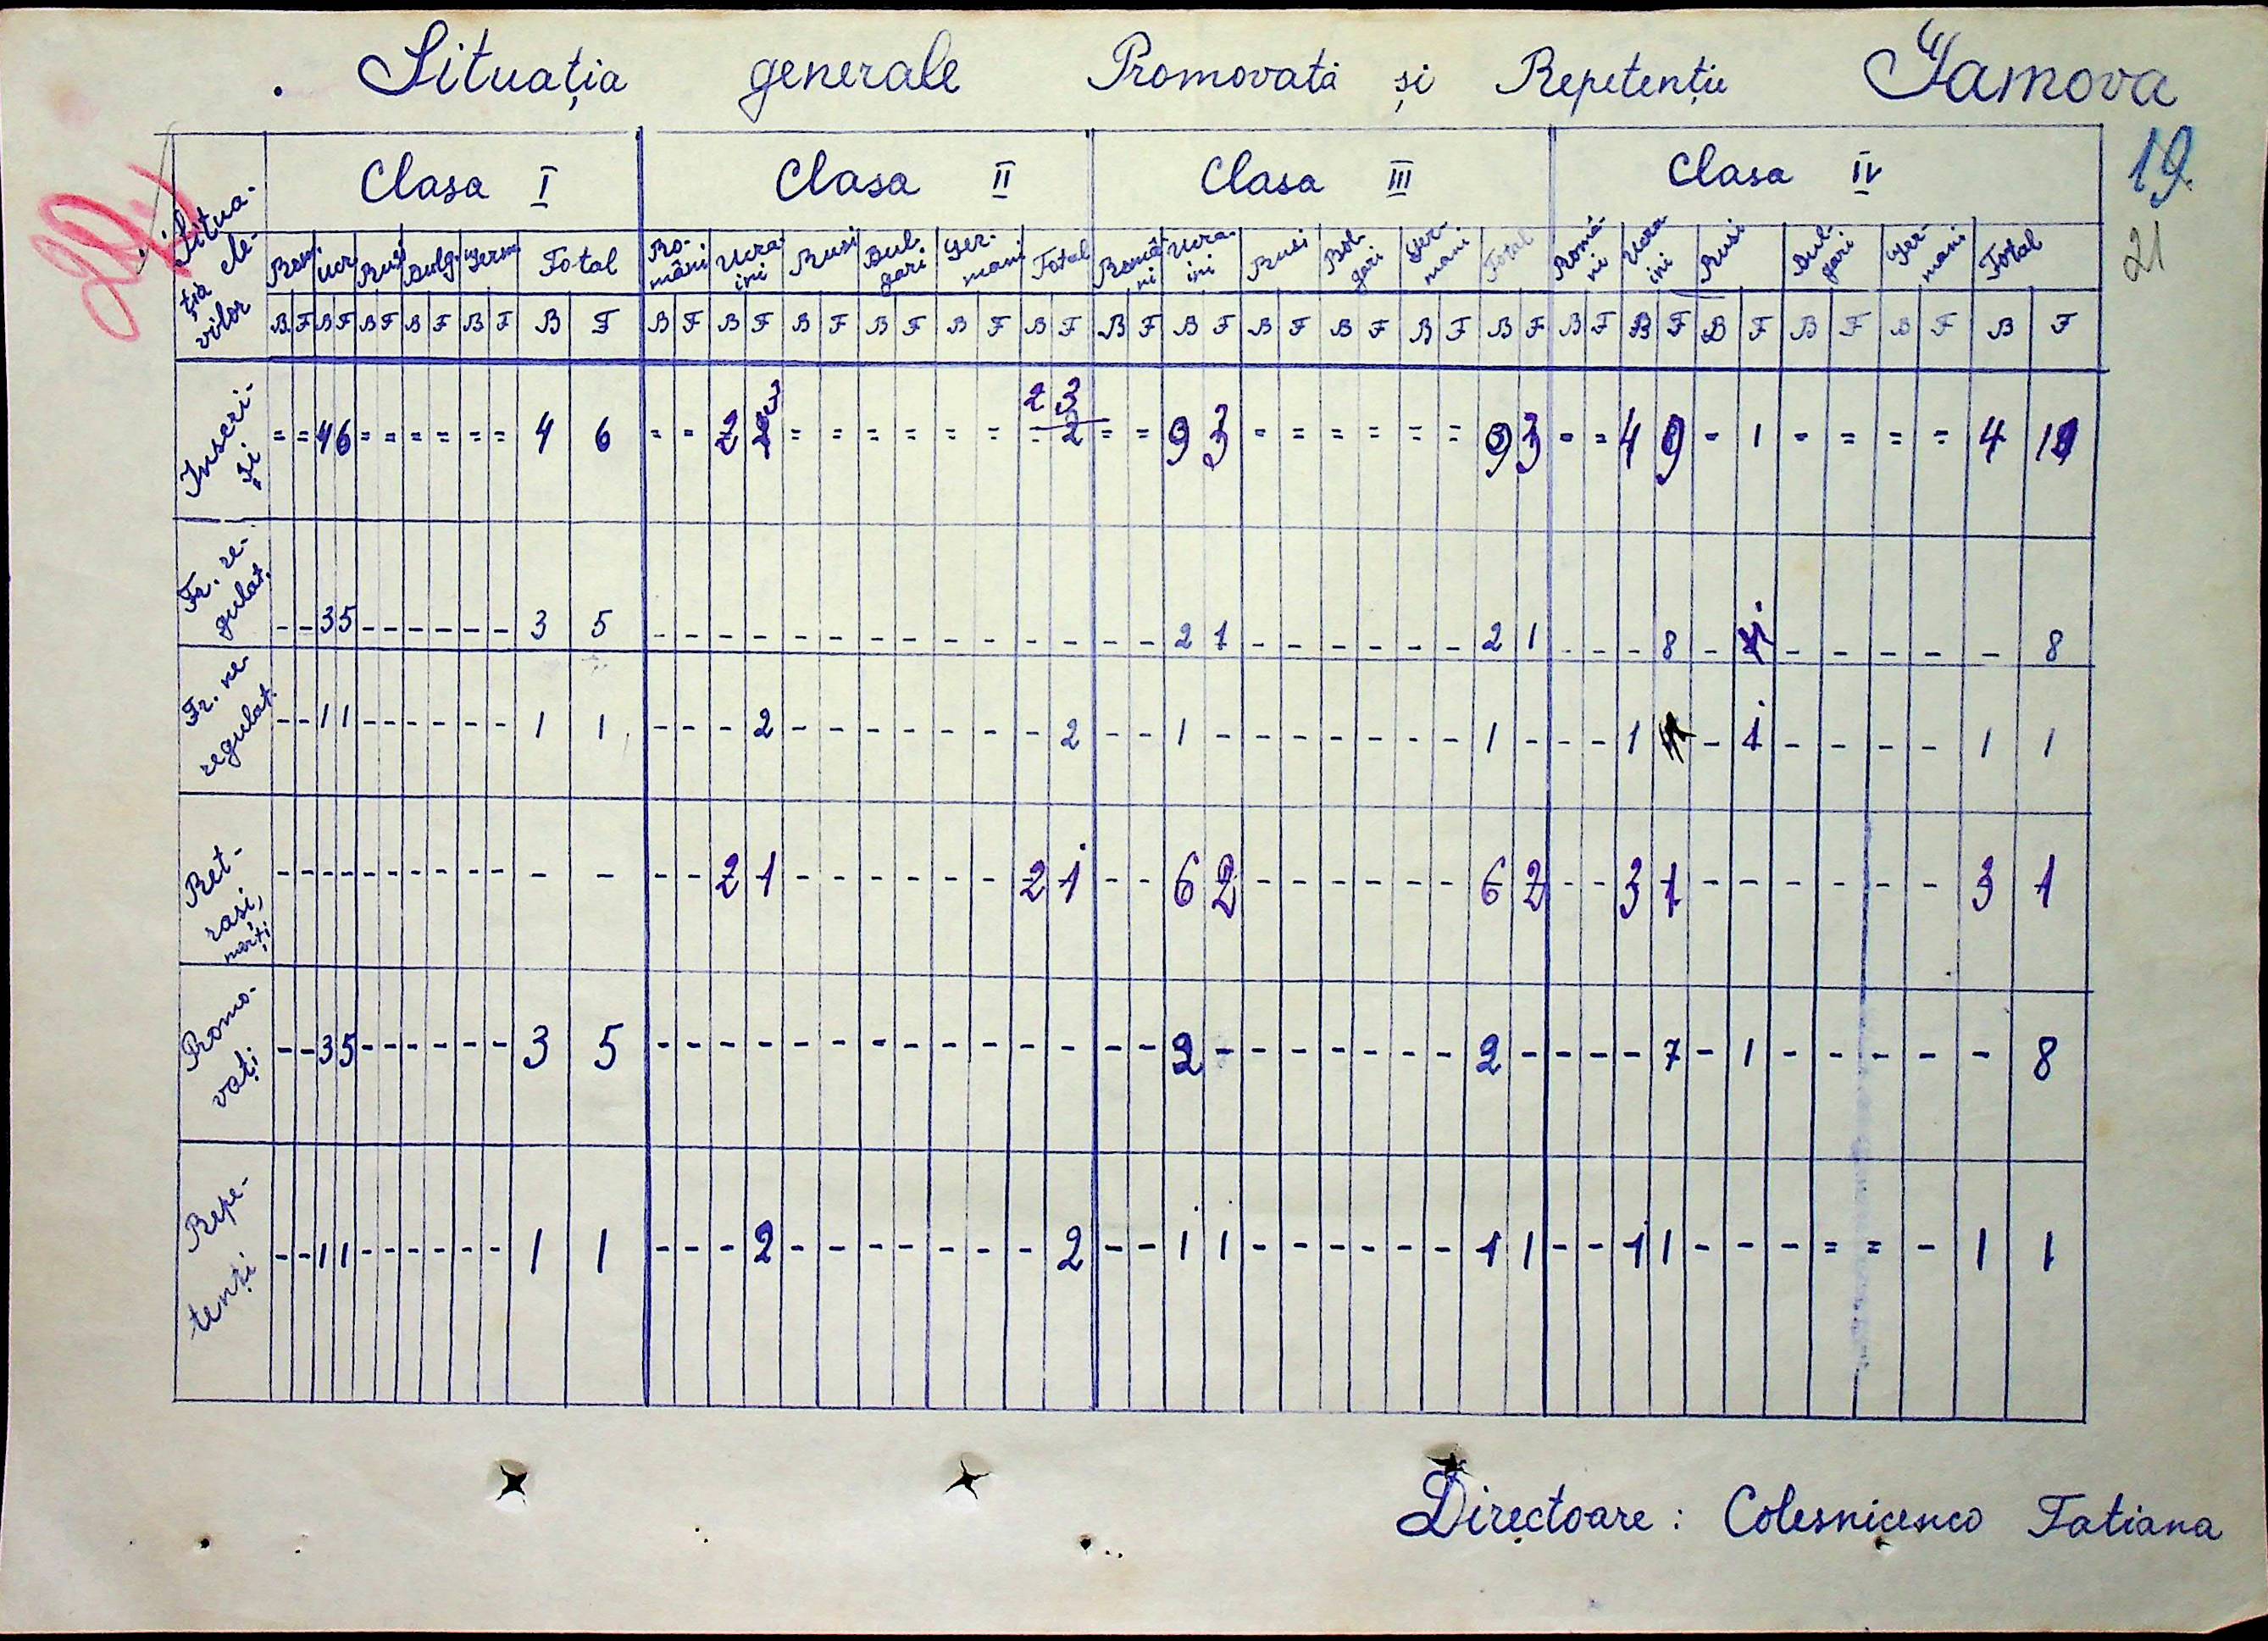 . Situația generale Promovată și Repetenție Gamova
19.
21
Situația elevilor
Clasa I Clasa II Clasa III Clasa IV
Rom Ucr Ruși Bulg. Germ Total Români Ucraini Ruși Bulgari Germani Total Români Ucraini Ruși Bolgari Germani Total Români Ucraini Ruși Bulgari Germani Total
B F B F B F B F B F B F B F B F B F B F B F B F B F B F B F B F B F B F B F B F B F B F B F B F
Înscriși = = 4 6 = = = = = = 4 6 = - 2 3 = = = = = = 2 3 = = 9 3 - = = = = = 9 3 - = 4 9 - 1 - = = = 4 10
Fr. regulat. - - 3 5 - - - - - - 3 5 - - - - - - - - - - - - - - 2 1 - - - - - - 2 1 - - - 8 - - - - - - 8
Fr. neregulat. - - 1 1 - - - - - - 1 1 - - - 2 - - - - - - - 2 - - 1 - - - - - - - 1 - - - 1 - 1 - - - - 1 1
Retrași, morți - - - - - - - - - - - - - - 2 1 - - - - - - 2 1 - - 6 2 - - - - - - 6 2 - - 3 1 - - - - - - 3 1
Promovați - - 3 5 - - - - - - 3 5 - - - - - - - - - - - - - - 2 - - - - - - - 2 - - - - 7 - 1 - - - - - 8
Repetenți - - 1 1 - - - - - - 1 1 - - - 2 - - - - - - - 2 - - 1 1 - - - - - - 1 1 - - 1 1 - - - = = - 1 1
Directoare : Colesnicenco Tatiana